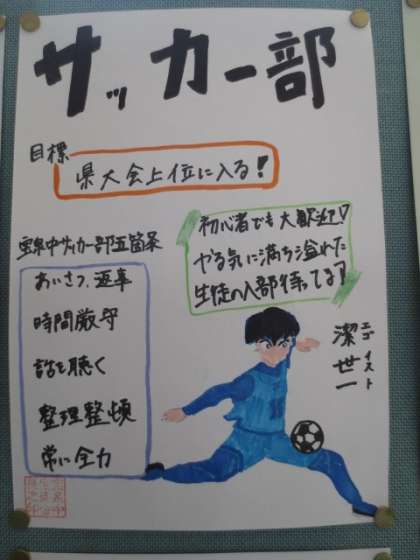 サッカー部
目標
県大会上位に入る!
初心者でも大歓迎♡
やる気に満ち溢れた
生徒の入部待ってる?
宝泉中サッカー部五箇条
あいさつ、返事
時間厳守
話を聴く
整理整頓
常に全力
エゴイスト
潔世一